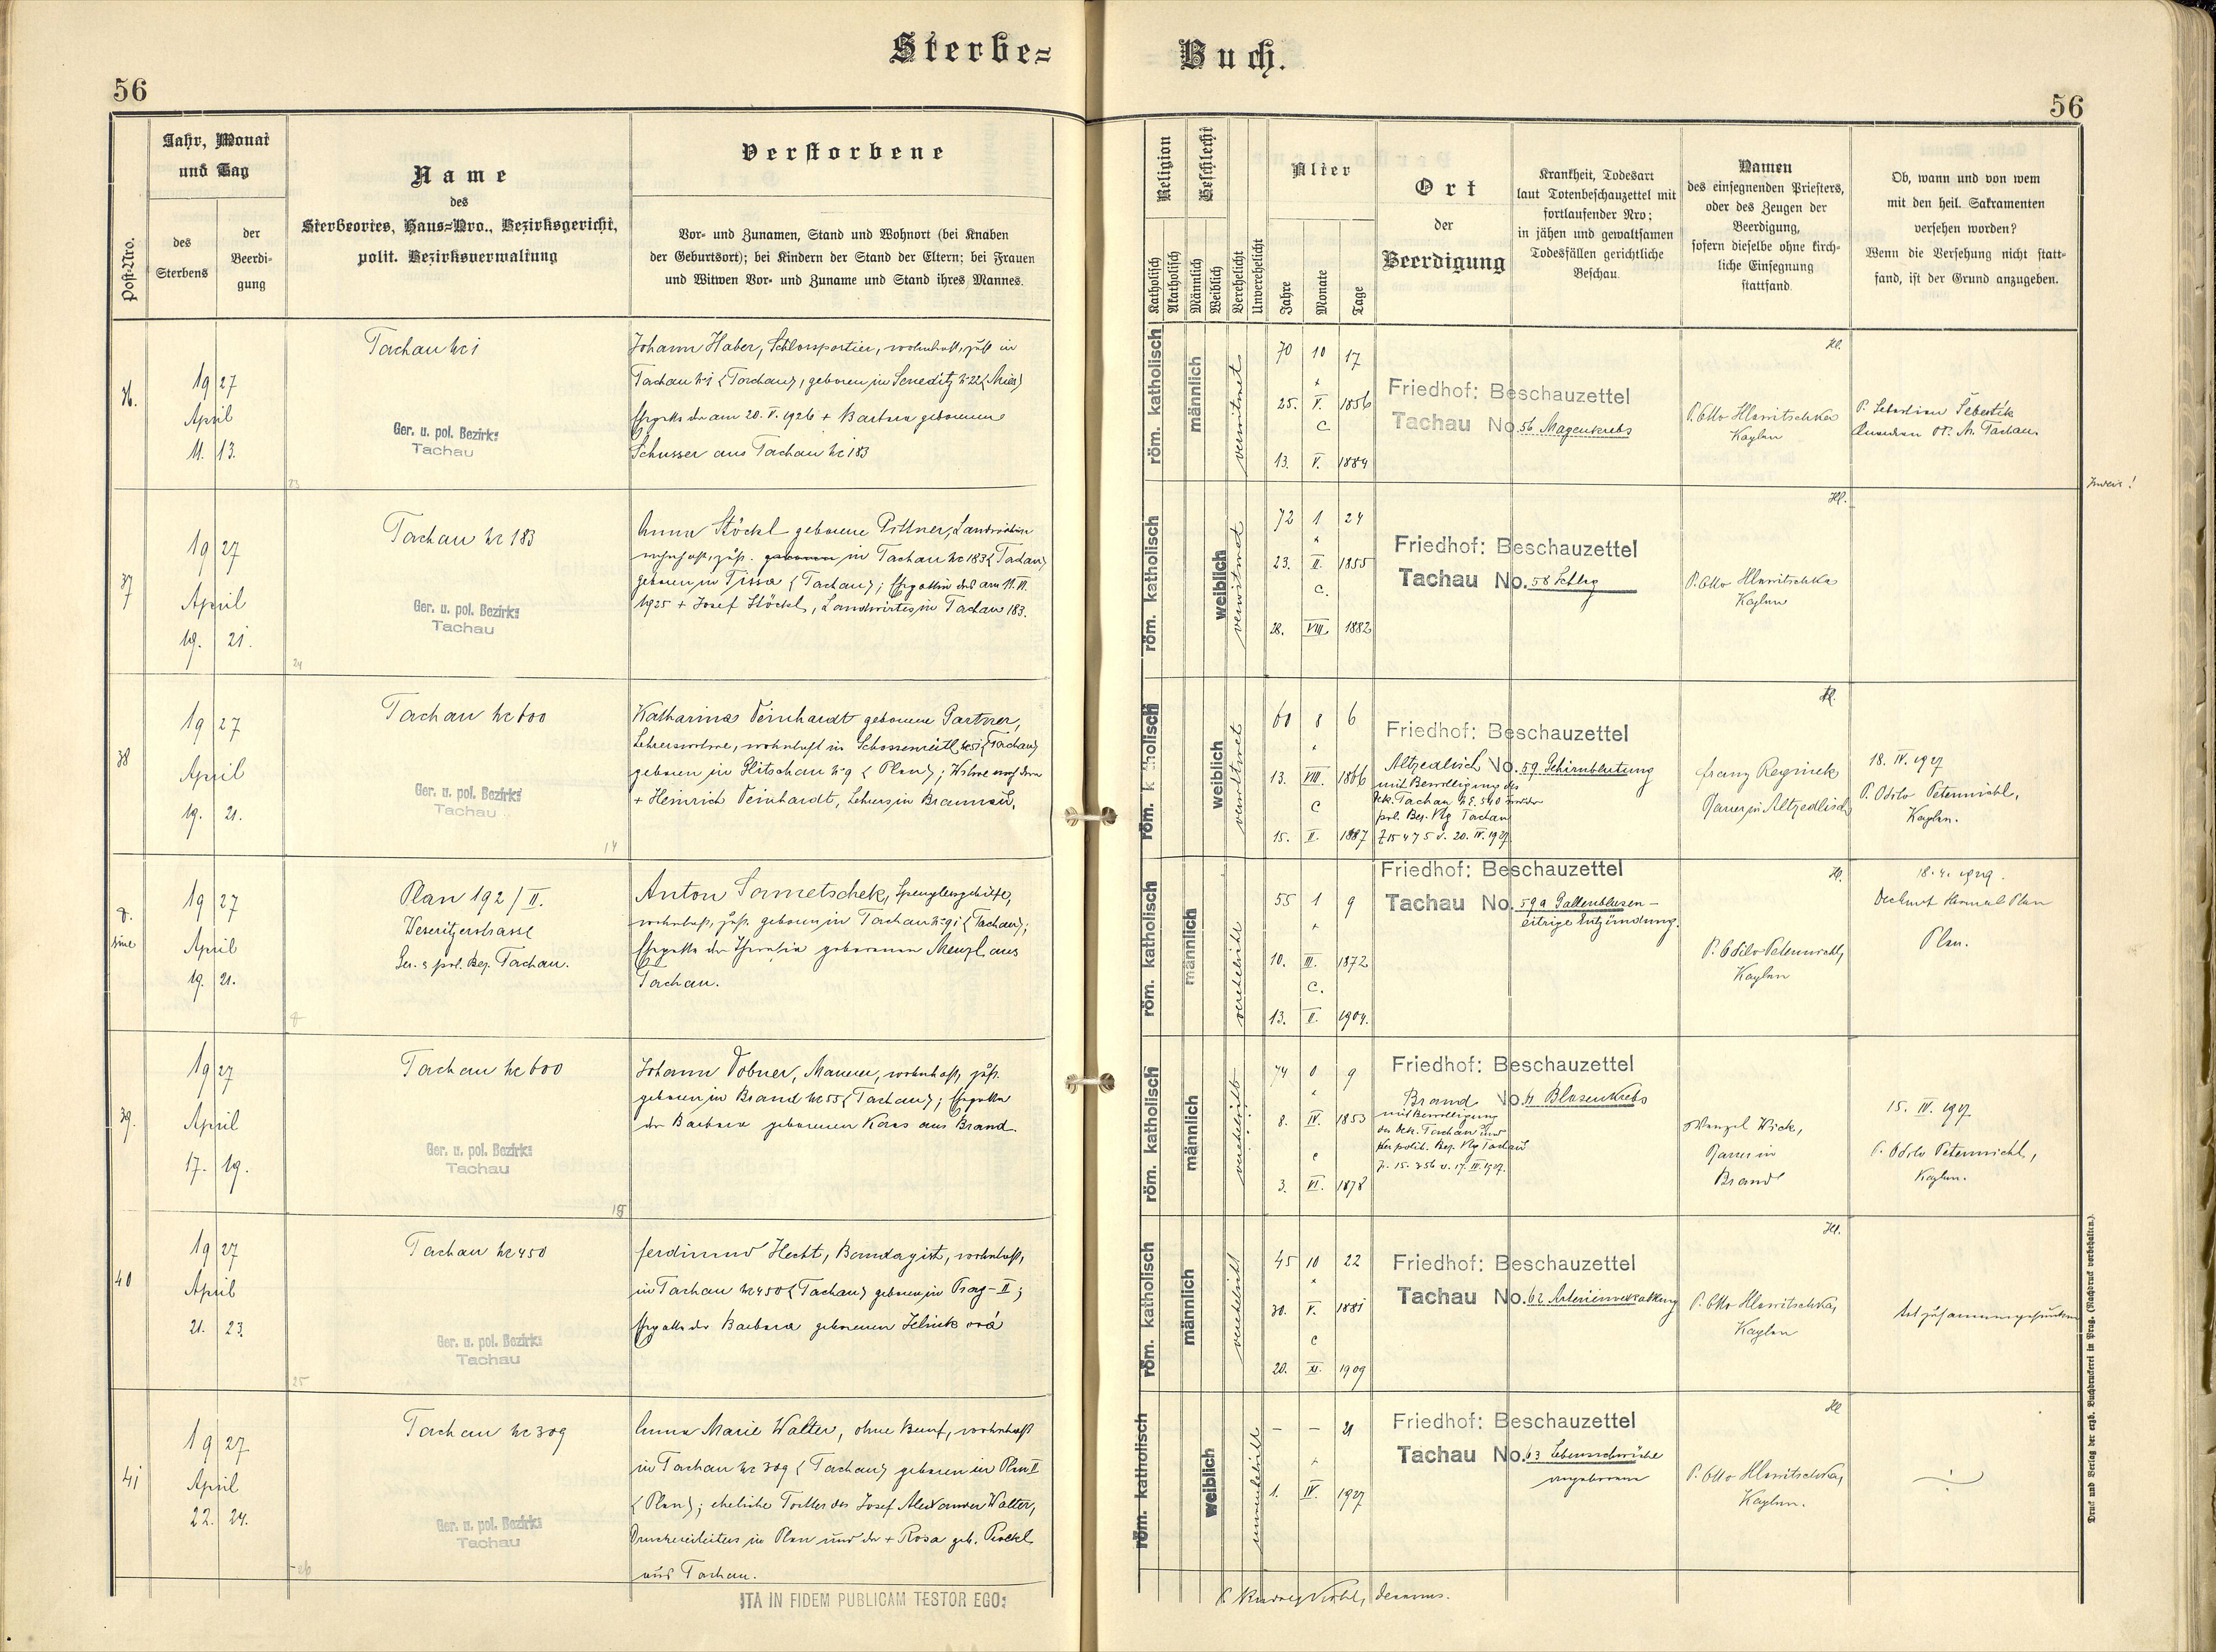 Sterbe=
Buch.
56
56
Post-Nro.
Jahr, Monat
und Tag
des
Sterbens
der
Beerdi-
gung
Name
des
Sterbeortes, Haus=Nro., Bezirksgericht,
polit. Bezirksverwaltung
Verstorbene
Vor- und Zunamen, Stand und Wohnort (bei Knaben
der Geburtsort); bei Kindern der Stand der Eltern; bei Frauen
und Witwen Vor- und Zuname und Stand ihres Mannes.
Religion
Katholisch
Akatholisch
Geschlecht
Männlich
Weiblich
Verehelicht
Unverehelicht
Alter
Jahre
Monate
Tage
Ort
der
Beerdigung
Krankheit, Todesart
laut Totenbeschauzettel mit
fortlaufender Nro;
in jähen und gewaltsamen
Todesfällen gerichtliche
Beschau.
Namen
des einsegnenden Priesters,
oder des Zeugen der
Beerdigung,
sofern dieselbe ohne kirch-
liche Einsegnung
stattfand.
Ob, wann und von wem
mit den heil. Sakramenten
versehen worden?
Wenn die Versehung nicht statt-
fand, ist der Grund anzugeben.
36.
1927
April
11. 13.
Tachau
Ger. u. pol. Bezirk:
Tachau
23
Johann Haber, Schlossportier, wohnhaft, zust in
Tachau (Tachau), geboren in Seneditz 22 (Mies)
am 20. V. 1926 + Barbara geborenen
Schusser aus Tachau 183
röm. katholisch
männlich
verwitwet
70 10 17
*
25. V. 1856
C
13. V. 1884
Friedhof: Beschauzettel
Tachau No. 56 Magenkrebs
Hl.
P. Otto Hlawitschka
Kaplan
P. Sebastian Šebestík
Tachau.
37
1927
April
19. 21.
Tachau 183
Ger. u. pol. Bezirk:
Tachau
24
Anna Stöckl geborene Pittner, Landwirtin
in Tachau 183 (Tachau)
geboren in Tissa (Tachau); Ehegattin des am
1925 + Josef Stöckl, Landwirtes in Tachau 183.
röm. katholisch
weiblich
verwitwet
72 1 24
*
23. II. 1855
C.
28. VIII. 1882
Friedhof: Beschauzettel
Tachau No. 58 Schlag
Hl.
P. Otto Hlawitschka
Kaplan
38
1927
April
19. 21.
Tachau 600
Ger. u. pol. Bezirk:
Tachau
14
Katharina geborene Gartner,
Lehrerswitwe, wohnhaft in Schossenreith (Tachau)
geboren in Glitschau 9 (Plan); Witwe nach dem
+ Heinrich, Lehrers in
röm. katholisch
weiblich
verwitwet
60 8 6
*
13. VIII. 1866
C
15. II. 1887
Friedhof: Beschauzettel
Altzedlisch No. 59 Gehirnblutung
mit Bewilligung des
Dek. Tachau
pol. Bez. Tachau
v. 20. IV. 1927
Hl.
Franz Reginek
Pfarrer in Altzedlisch
18. IV. 1927
P. Odilo Petermichl,
Kaplan.
1927
April
19. 21.
Plan 192/II.
Weseritzerstrasse
Ger. & pol. Bez. Tachau.
Anton Sametschek, Spenglergehilfe,
wohnhaft, zust. geboren in Tachau (Tachau);
Ehegatte der geborenen Menzl aus
Tachau.
röm. katholisch
männlich
verehelicht
55 1 9
*
10. III. 1872
C.
13. II. 1904.
Friedhof: Beschauzettel
Tachau No. 59a Gallenblasen-
eitrige Entzündung.
Hl.
P. Odilo Petermichl,
Kaplan
Plan.
39.
1927
April
17. 19.
Tachau 600
Ger. u. pol. Bezirk:
Tachau
15
Johann Dobner, Maurer, wohnhaft, zust.
geboren in Brand 55 (Tachau); Ehegatte
der Barbara geborenen Karas aus Brand.
röm. katholisch
männlich
verehelicht
74 0 9
*
8. IV. 1853
C
3. VI. 1878
Friedhof: Beschauzettel
Brand No. Blasenkrebs
mit Bewilligung
des Dek. Tachau und
der polit. Bez. Tachau
Wenzel Wick,
Pfarrer in
Brand
15. IV. 1927
P. Odilo Petermichl,
Kaplan.
40
1927
April
21. 23.
Tachau 450
Ger. u. pol. Bezirk:
Tachau
25
Ferdinand Hecht, Bandagist, wohnhaft,
in Tachau 450 (Tachau) geboren in Prag-II;
Ehegatte der Barbara geborenen Jelinková
röm. katholisch
männlich
verehelicht
45 10 22
*
30. V. 1881
C
20. XI. 1909
Friedhof: Beschauzettel
Tachau No. 62 Arterienverkalkung
Hl.
P. Otto Hlawitschka,
Kaplan
tot zusammengesunken
41
1927
April
22. 24.
Tachau 309
Ger. u. pol. Bezirk:
Tachau
26
Anna Marie Walter, ohne Beruf, wohnhaft
in Tachau 309 (Tachau) geboren in Plan II
(Plan); eheliche Tochter des Josef Alexander Walter,
Druckereileiters in Plan und der + Rosa geb.
aus Tachau.
röm. katholisch
weiblich
unverehelicht
- - 21
*
1. IV. 1927
Friedhof: Beschauzettel
Tachau No. 63 Lebensschwäche
angeborene
Hl
P. Otto Hlawitschka,
Kaplan.
ITA IN FIDEM PUBLICAM TESTOR EGO:
decanus.
Druck und Verlag der erzb. Buchdruckerei in Prag. (Nachdruck vorbehalten.)